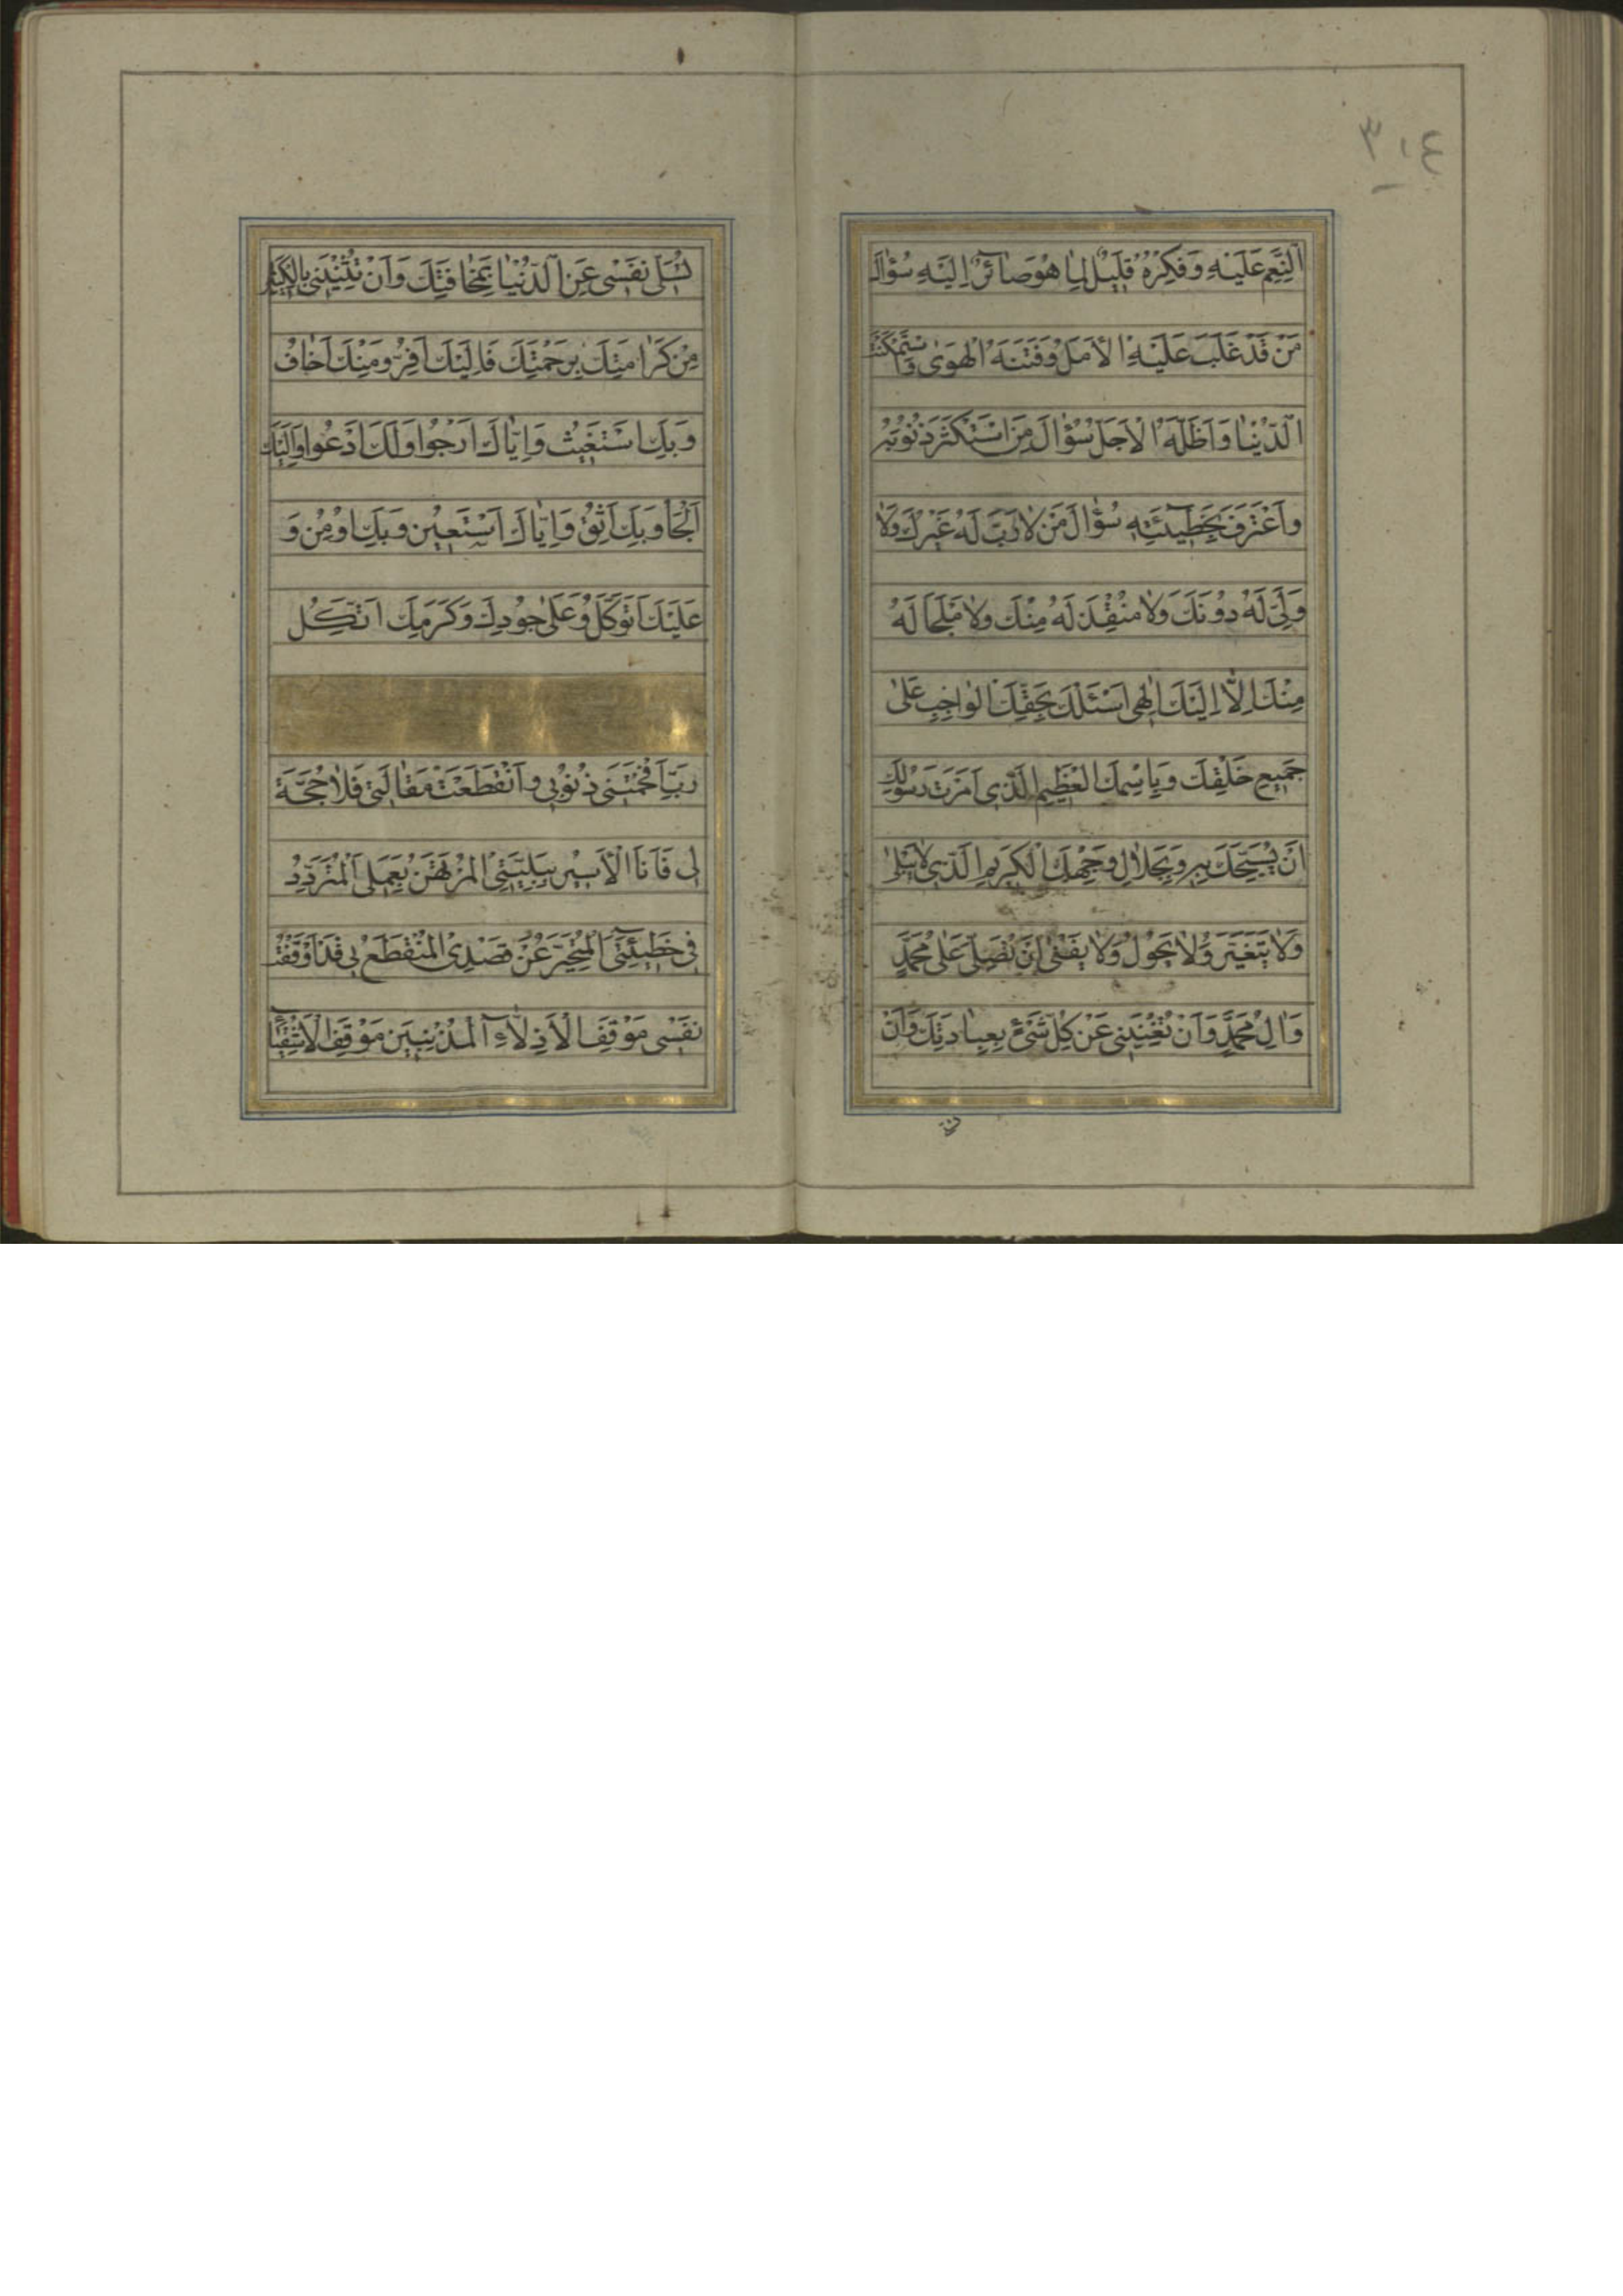 ٣١٤
اَلنِّعَمِ عَلَيْهِ وَفِكْرُهُ قَلِيلٌ لِمٰا هُوَ صٰائِرٌ اِلَيْهِ سُؤٰالَ
مَنْ قَدْ غَلَبَ عَلَيْهِ الْاَمَلُ وَفَتَنَهُ الْهَوىٰ وَاسْتَمْكَنَتْ
الدُّنْيٰا وَاَظَلَّهُ الْاَجَلُ سُؤٰالَ مَنِ اسْتَكْثَرَ ذُنُوبَهُ
وَاعْتَرَفَ بِخَطِيٓئَتِهِ سُؤٰالَ مَنْ لٰا رَبَّ لَهُ غَيْرُكَ وَلٰا
وَلِيَّ لَهُ دُونَكَ وَلٰا مُنْقِذَ لَهُ مِنْكَ وَلٰا مَلْجَاَ لَهُ
مِنْكَ اِلّٰا اِلَيْكَ اِلٰهِى اَسْئَلُكَ بِحَقِّكَ الْوٰاجِبِ عَلىٰ
جَمِيعِ خَلْقِكَ وَبِاسْمِكَ الْعَظِيمِ الَّذِى اَمَرْتَ رَسُولَكَ
اَنْ يُسَبِّحَكَ بِهِ وَبِجَلٰالِ وَجْهِكَ الْكَرِيمِ الَّذِى لٰا يَبْلىٰ
وَلٰا يَتَغَيَّرُ وَلٰا يَحُولُ وَلٰا يَفْنىٰ اَنْ تُصَلِّىَ عَلىٰ مُحَمَّدٍ
وَاٰلِ مُحَمَّدٍ وَاَنْ تُغْنِيَنِى عَنْ كُلِّ شَىْءٍ بِعِبٰادَتِكَ وَاَنْ
تُسَلِّىَ نَفْسِى عَنِ الدُّنْيٰا بِمَخٰافَتِكَ وَاَنْ تُثْنِيَنِى بِالْكَثِيرِ
مِنْ كَرٰامَتِكَ بِرَحْمَتِكَ فَاِلَيْكَ اَفِرُّ وَمِنْكَ اَخٰافُ
وَبِكَ اَسْتَغِيثُ وَاِيّٰاكَ اَرْجُوا وَلَكَ اَدْعُوا وَاِلَيْكَ
اَلْجَاُ وَبِكَ اَثِقُ وَاِيّٰاكَ اَسْتَعِينُ وَبِكَ اُومِنُ وَ
عَلَيْكَ اَتَوَكَّلُ وَعَلىٰ جُودِكَ وَكَرَمِكَ اَتَّكِلُ
رَبِّ اَفْحَمَتْنِى ذُنُوبِى وَانْقَطَعَتْ مَقٰالَتِى فَلٰا حُجَّةَ
لِى فَاَنَا الْاَسِيرُ بِبَلِيَّتِى الْمُرْتَهَنُ بِعَمَلِى اَلْمُتَرَدِّدُ
فِى خَطِيئَتِى الْمُتَحَيِّرُ عَنْ قَصْدِى الْمُنْقَطَعُ بِى قَدْ اَوْقَفْتُ
نَفْسِى مَوْقِفَ الْاَذِلّٰاءِ الْمُذْنِبِينَ مَوْقِفَ الْاَشْقِيٰاءِ